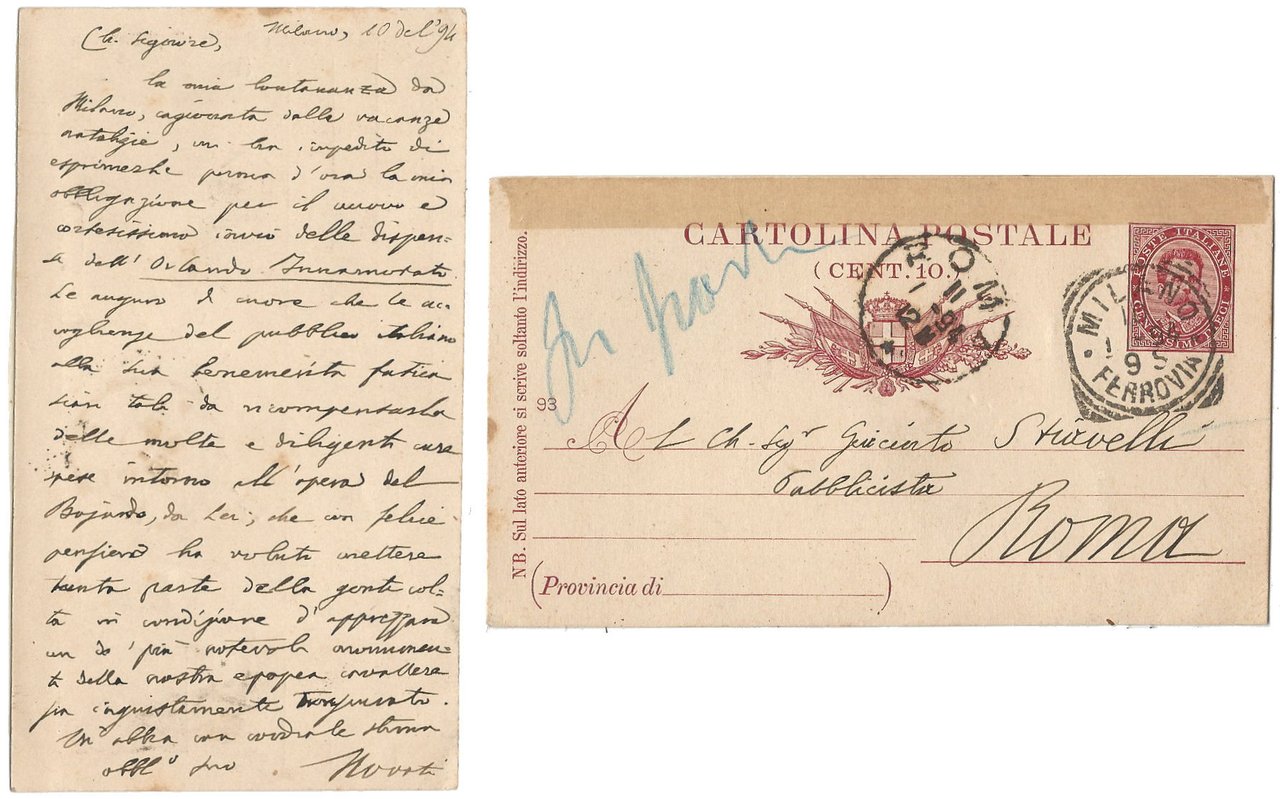 Milano, 10 del '94
Ch. Signore,
la mia lontananza da
Milano, cagionata dalle vacanze
natalizie, m'ha impedito di
esprimerle prima d'ora la mia
obbligazione per il nuovo e
cortesissimo invio delle dispen-
se dell'Orlando Innamorato
Le auguro di cuore che le ac-
coglienze del pubblico italiano
alla Sua benemerita fatica
sian tali da ricompensarla
delle molte e diligenti cure
spese intorno all'opera del
Bojardo, da Lei, che con felice
pensiero ha voluto mettere
tanta parte della gente col-
ta in condizione d'apprezzare
un de' più notevoli monumen-
ti della nostra epopea cavallere
sca ingiustamente trascurato.
M'abbia con cordiale stima
obbl° suo Novati
CARTOLINA POSTALE
(CENT. 10.)
POSTE ITALIANE
CENTESIMI DIECI
ROMA
MILANO
95
FERROVIA
NB. Sul lato anteriore si scrive soltanto l'indirizzo.
93
Al Ch. Sigr Giacinto Stiavelli
Pubblicista
Roma
(Provincia di )